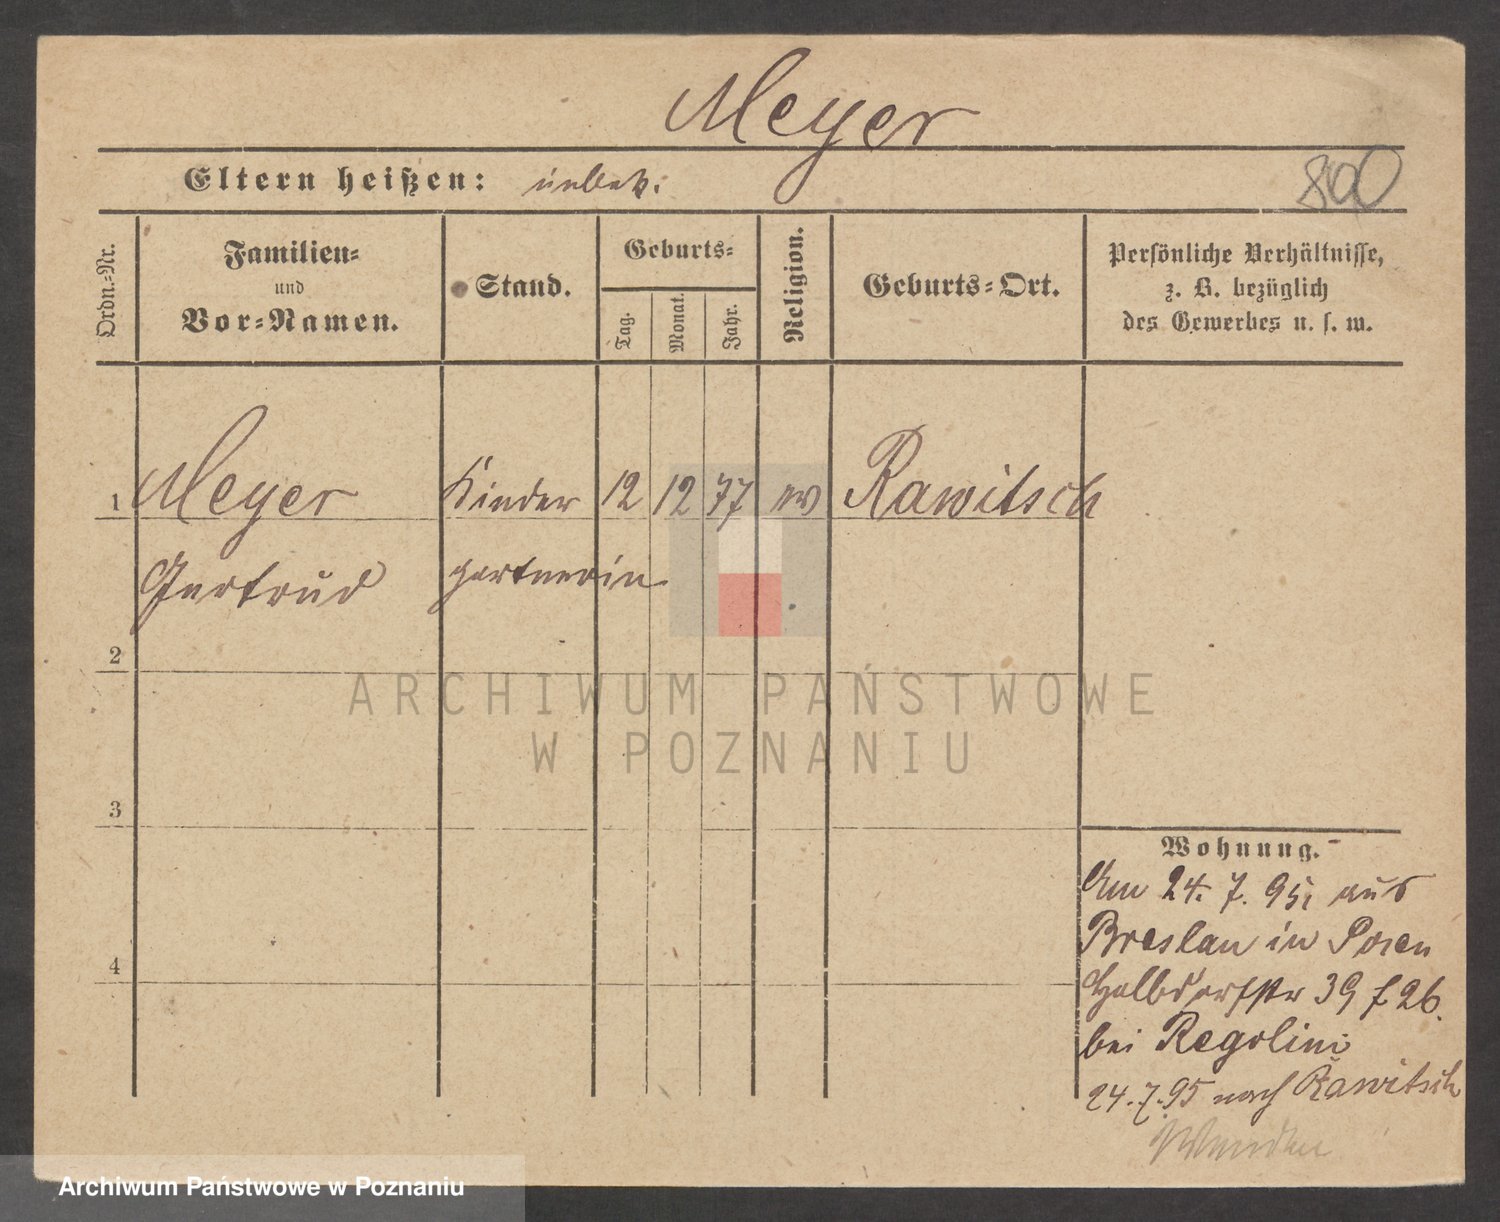 Meyer
800
Eltern heißen: unbek.
Ordn.-Nr.
Familien-
und
Vor-Namen.
Stand.
Geburts-
Tag.
Monat.
Jahr.
Religion.
Geburts-Ort.
Persönliche Verhältnisse,
z. B. bezüglich
des Gewerbes u. s. w.
1 Meyer Kinder 12 12 77 ev Rawitsch
Gertrud gartnerin
2
ARCHIWUM PAŃSTWOWE
W POZNANIU
3
Wohnung.
Am 24. 7. 95. aus
Breslau in Posen
4
Halbdorfstr 39 f 26.
bei Regolini
24.7.95 nach Rawitsch
Archiwum Państwowe w Poznaniu